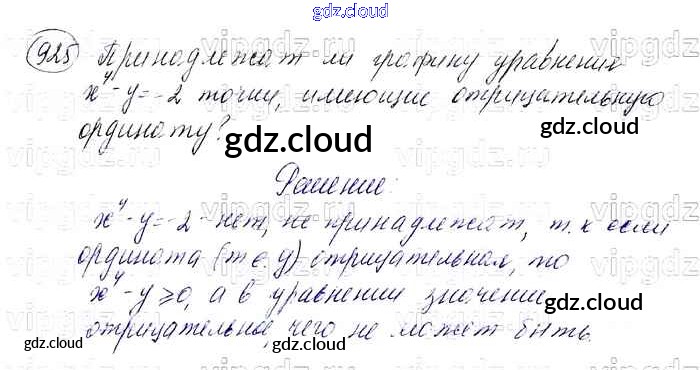 gdz.cloud
925 Принадлежат ли графику уравнения
x⁴-y=-2 точки, имеющие отрицательную
ординату?
gdz.cloud
gdz.cloud
Решение:
x⁴-y=-2 - нет, не принадлежат, т.к если
ордината (т.е. y) отрицательная, то
x⁴-y≥0, а в уравнении значение
gdz.cloud
отрицательно, чего не может быть.
gdz.cloud
gdz.cloud